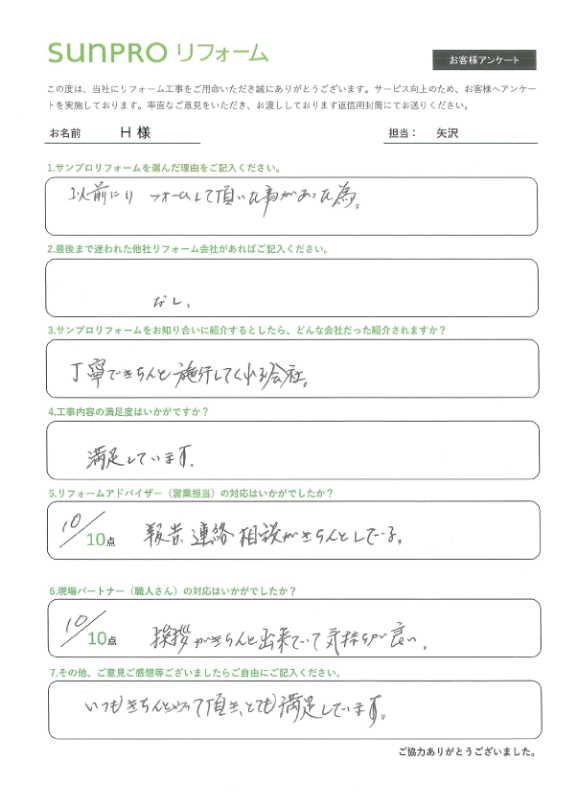 SUNPRO リフォーム
お客様アンケート
この度は、当社にリフォーム工事をご用命いただき誠にありがとうございます。サービス向上のため、お客様へアンケー
トを実施しております。率直なご意見をいただき、お渡ししております返信用封筒にてお送りください。
お名前 H 様 担当： 矢沢
1.サンプロリフォームを選んだ理由をご記入ください。
以前にリフォームして頂いた事があった為。
2.最後まで迷われた他社リフォーム会社があればご記入ください。
なし。
3.サンプロリフォームをお知り合いに紹介するとしたら、どんな会社だった紹介されますか？
丁寧できちんと施行してくれる会社。
4.工事内容の満足度はいかがですか？
満足しています。
5.リフォームアドバイザー（営業担当）の対応はいかがでしたか？
10/10点 報告連絡相談がきちんとしている。
6.現場パートナー（職人さん）の対応はいかがでしたか？
10/10点 挨拶がきちんと出来ていて気持ちが良い。
7.その他、ご意見ご感想等ございましたらご自由にご記入ください。
いつもきちんとやって頂き、とても満足しています。
ご協力ありがとうございました。